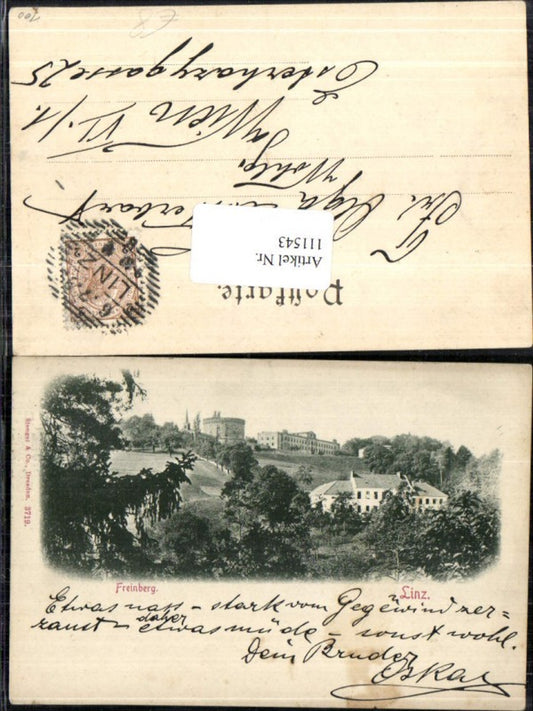 Postkarte.
Artikel Nr.
111543
LINZ
Frl. Olga
Wohlg.
Wien VI./1.
Esterhazygasse 25
Stengel & Co., Dresden. 3719.
Freinberg.
Linz.
Etwas nass – stark vom Gegewind zer=
raust – daher etwas müde – sonst wohl.
Dein Bruder
Oskar